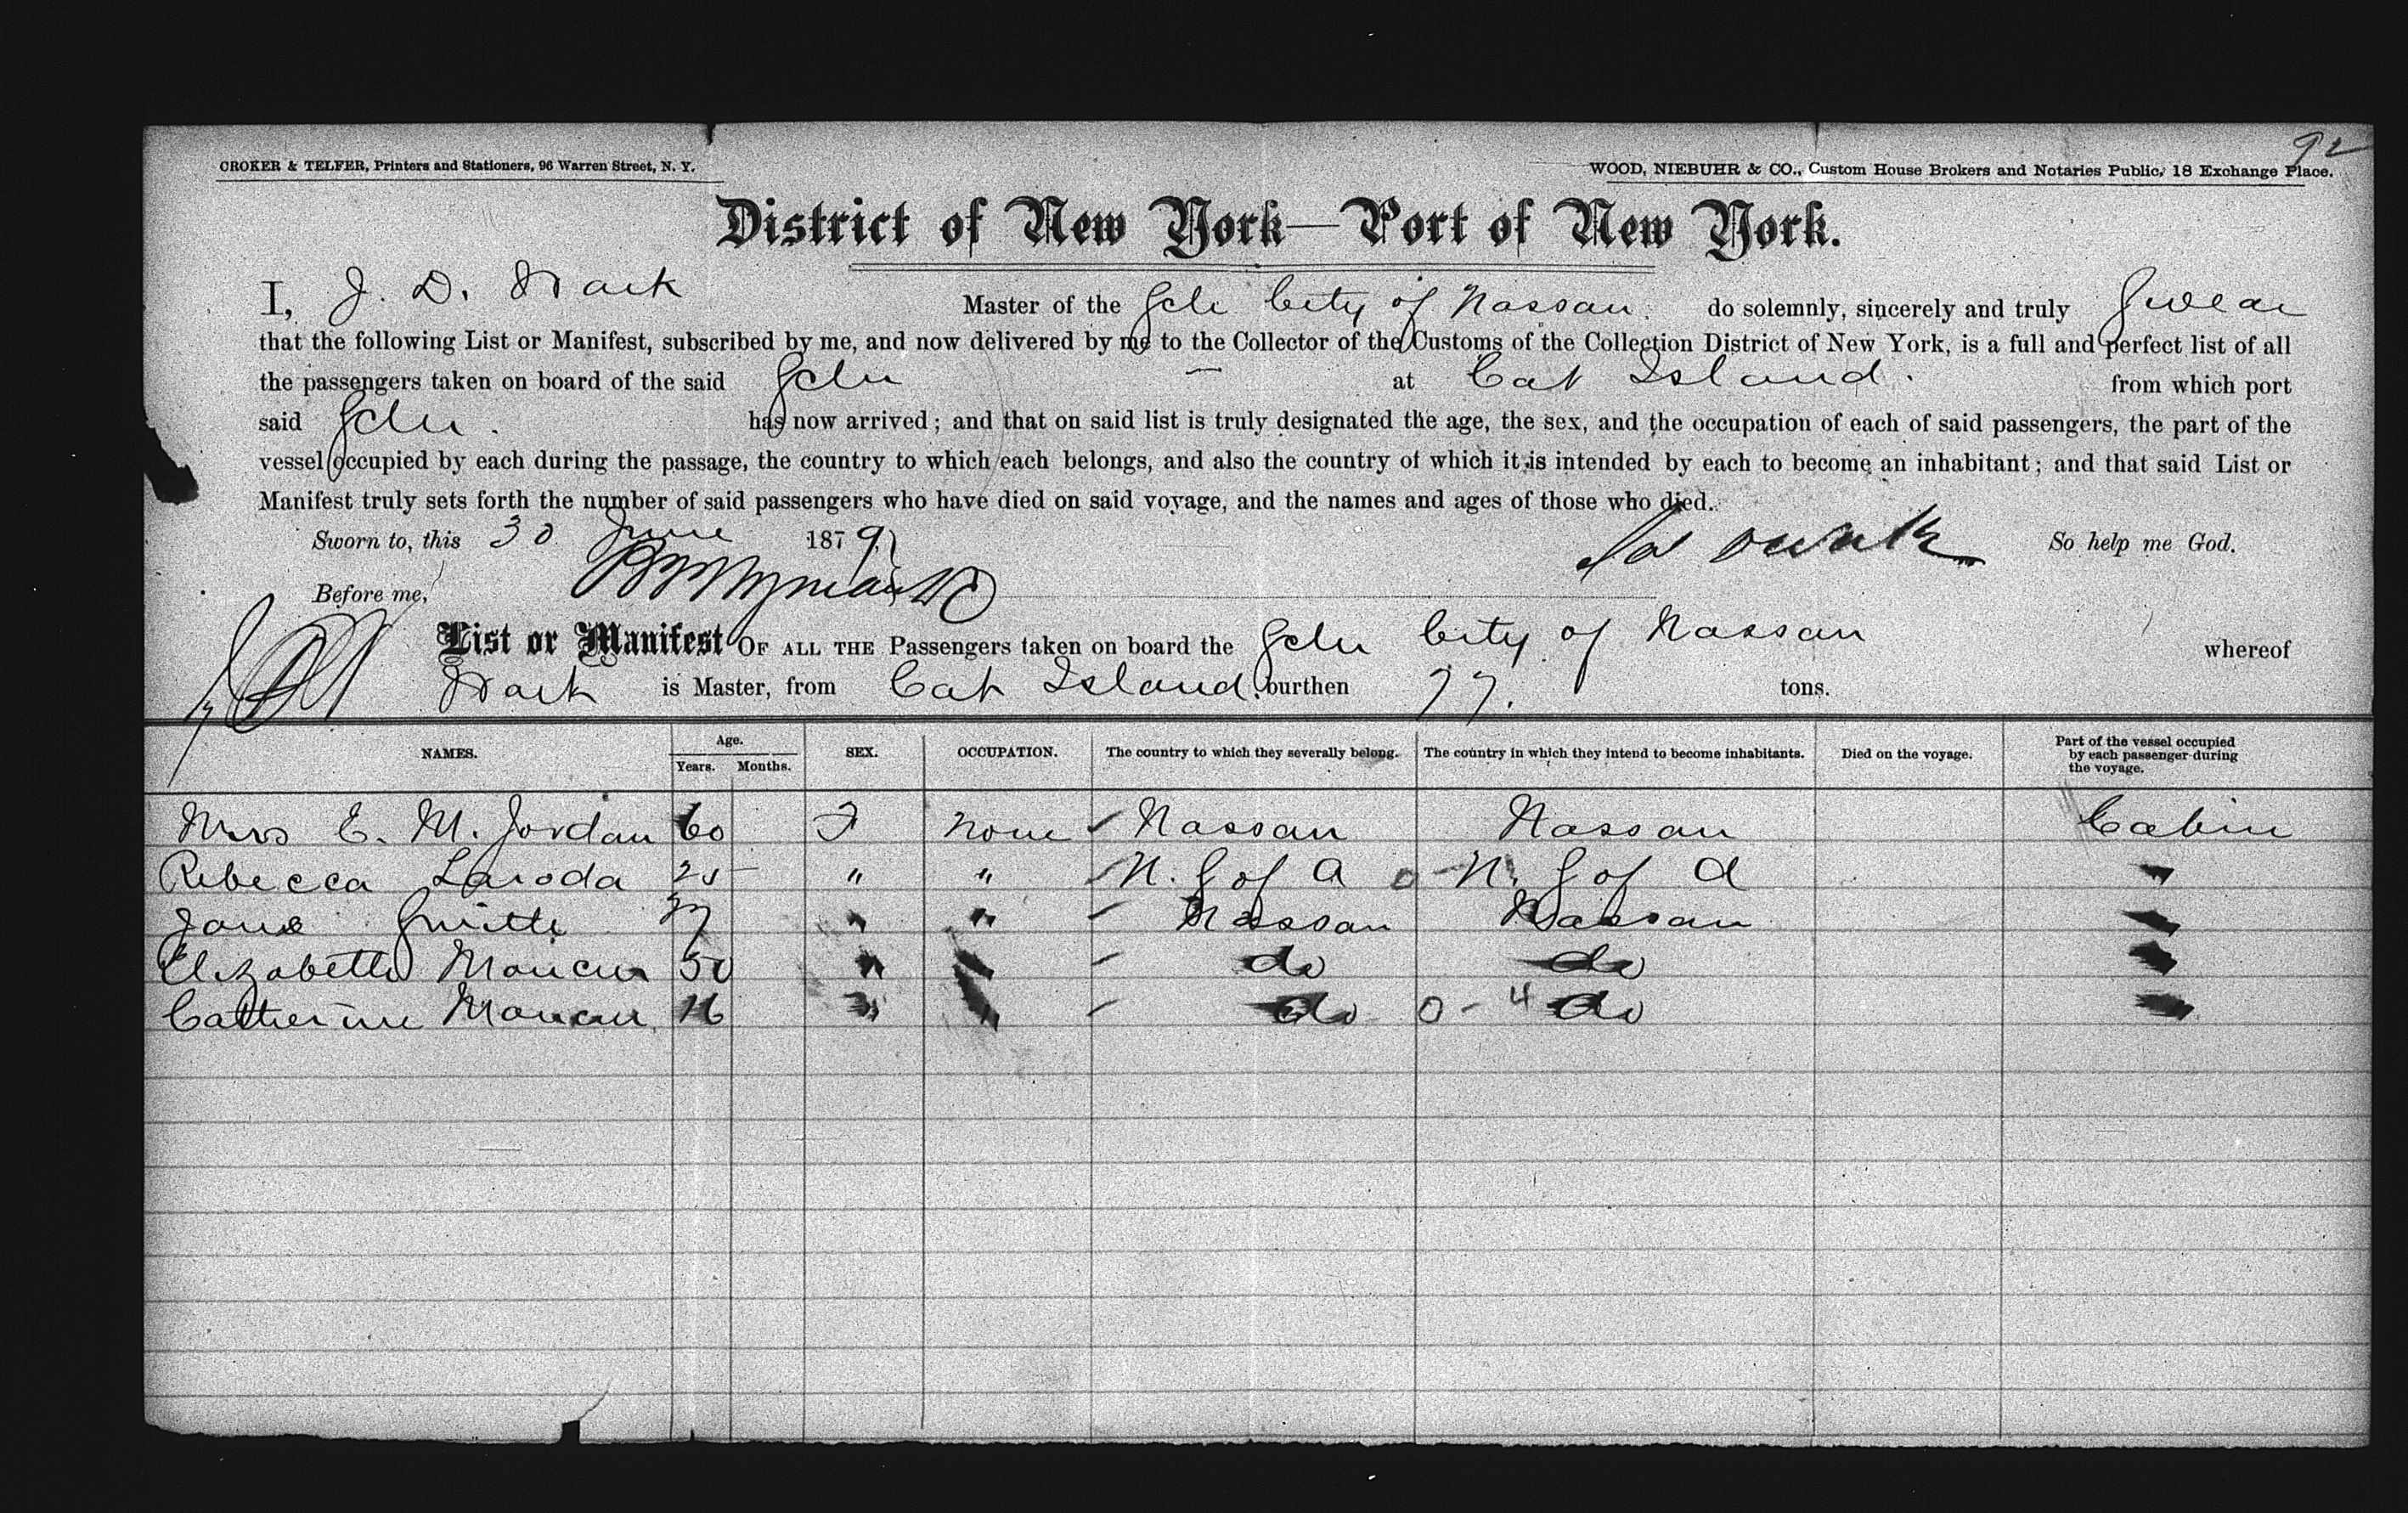 92
CROKER & TELFER, Printers and Stationers, 96 Warren Street, N. Y. WOOD, NIEBUHR & CO., Custom House Brokers and Notaries Public, 18 Exchange Place.
District of New York—Port of New York.
I, J. D. Master of the Schr City of Nassau. do solemnly, sincerely and truly Swear
that the following List or Manifest, subscribed by me, and now delivered by me to the Collector of the Customs of the Collection District of New York, is a full and perfect list of all
the passengers taken on board of the said Schr — at Cat Island. from which port
said Schr. has now arrived; and that on said list is truly designated the age, the sex, and the occupation of each of said passengers, the part of the
vessel occupied by each during the passage, the country to which each belongs, and also the country of which it is intended by each to become an inhabitant; and that said List or
Manifest truly sets forth the number of said passengers who have died on said voyage, and the names and ages of those who died.
Sworn to, this 30 June 1879 So help me God.
Before me,
List or Manifest OF ALL THE Passengers taken on board the Schr City of Nassau whereof
is Master, from Cat Island. burthen 77. tons.
NAMES. Age. Years. Months. SEX. OCCUPATION. The country to which they severally belong. The country in which they intend to become inhabitants. Died on the voyage. Part of the vessel occupied by each passenger during the voyage.
Mrs E. M. Jordan 60 F None Nassau Nassau Cabin
Rebecca Laroda 25 " " N. S of A N. S of A "
Jane " " Nassau Nassau "
Elizabeth 50 " " do do "
Catherine 16 " " do 0 - 4 do "